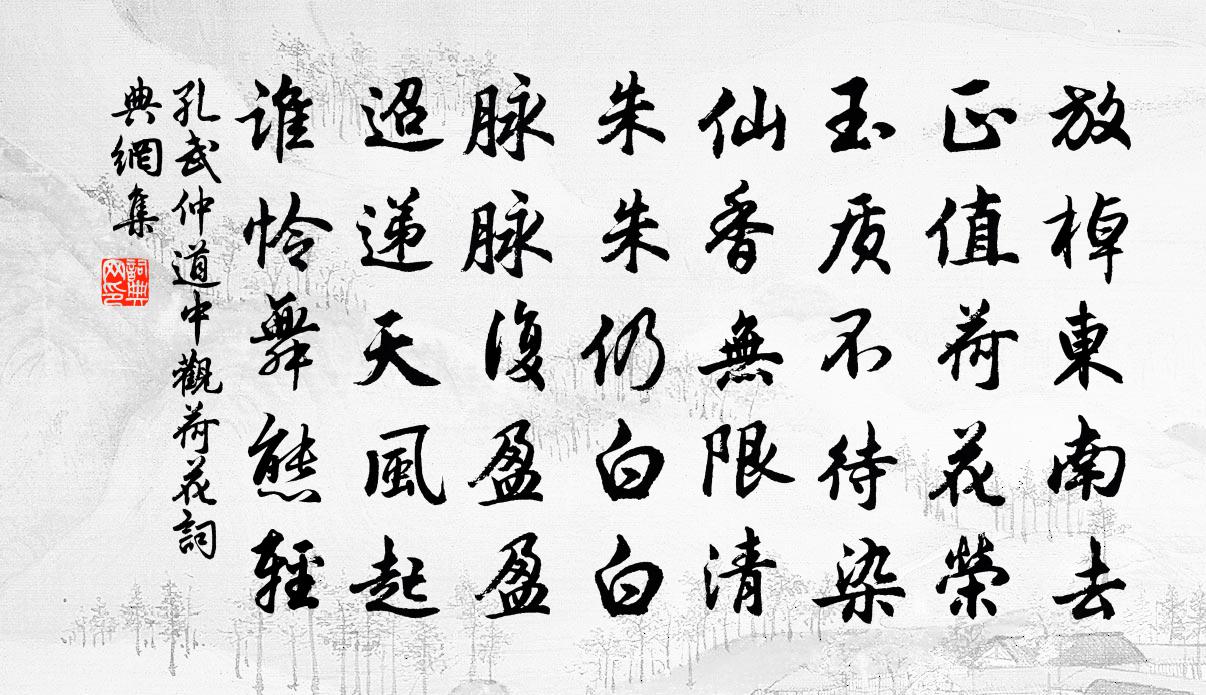 放棹東南去
正值荷花榮
玉质不待染
仙香無限清
朱朱仍白白
脉脉復盈盈
迢递天風起
谁怜舞態輕
孔武仲道中觀荷花詞
典網集
詞典
网印